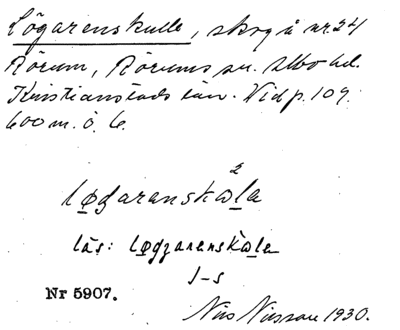 Lögarenskulle, skog å nr. 24
Rörum, Rörums sn. Albo hd.
Kristianstads län. Vid p. 109.
600 m. ö. 6.
2
løgarenskωla
läs: løgzarenskωla
1-s
Nr 5907.
Nils Nilsson 1930.